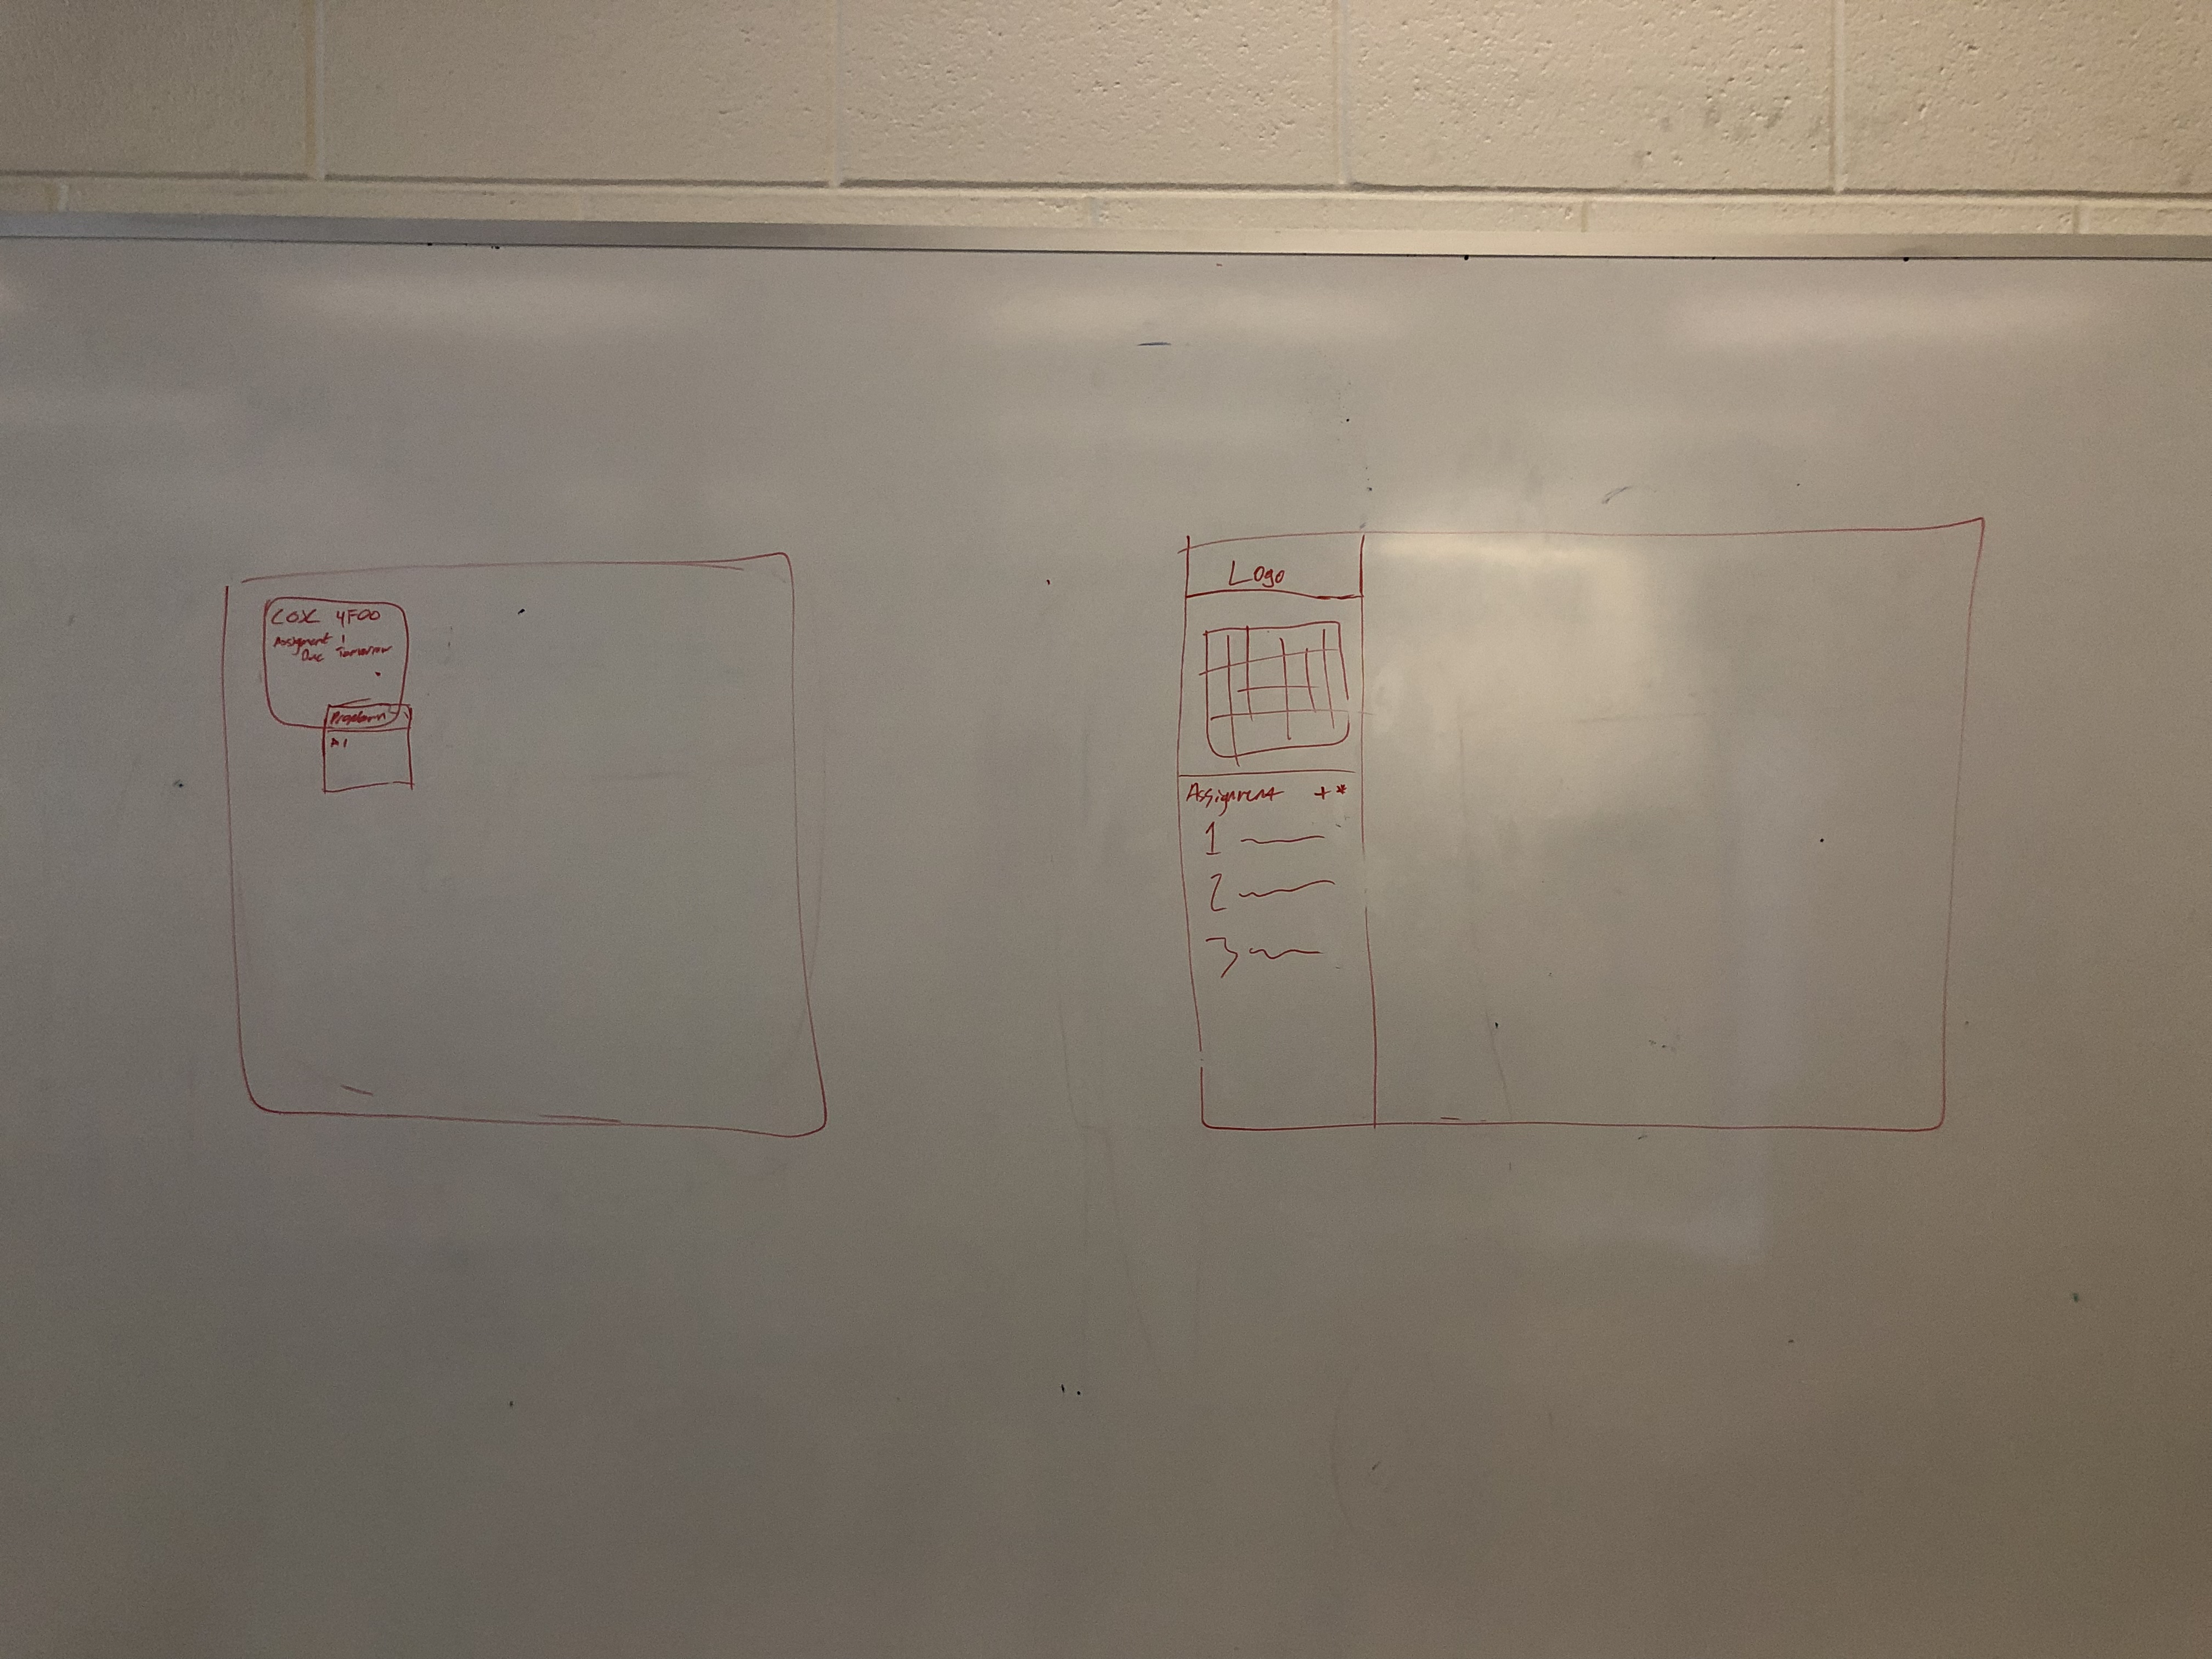 COSC 4F00
Assignment 1
Due Tomorrow
A1
Logo
Assignment + *
1
2
3